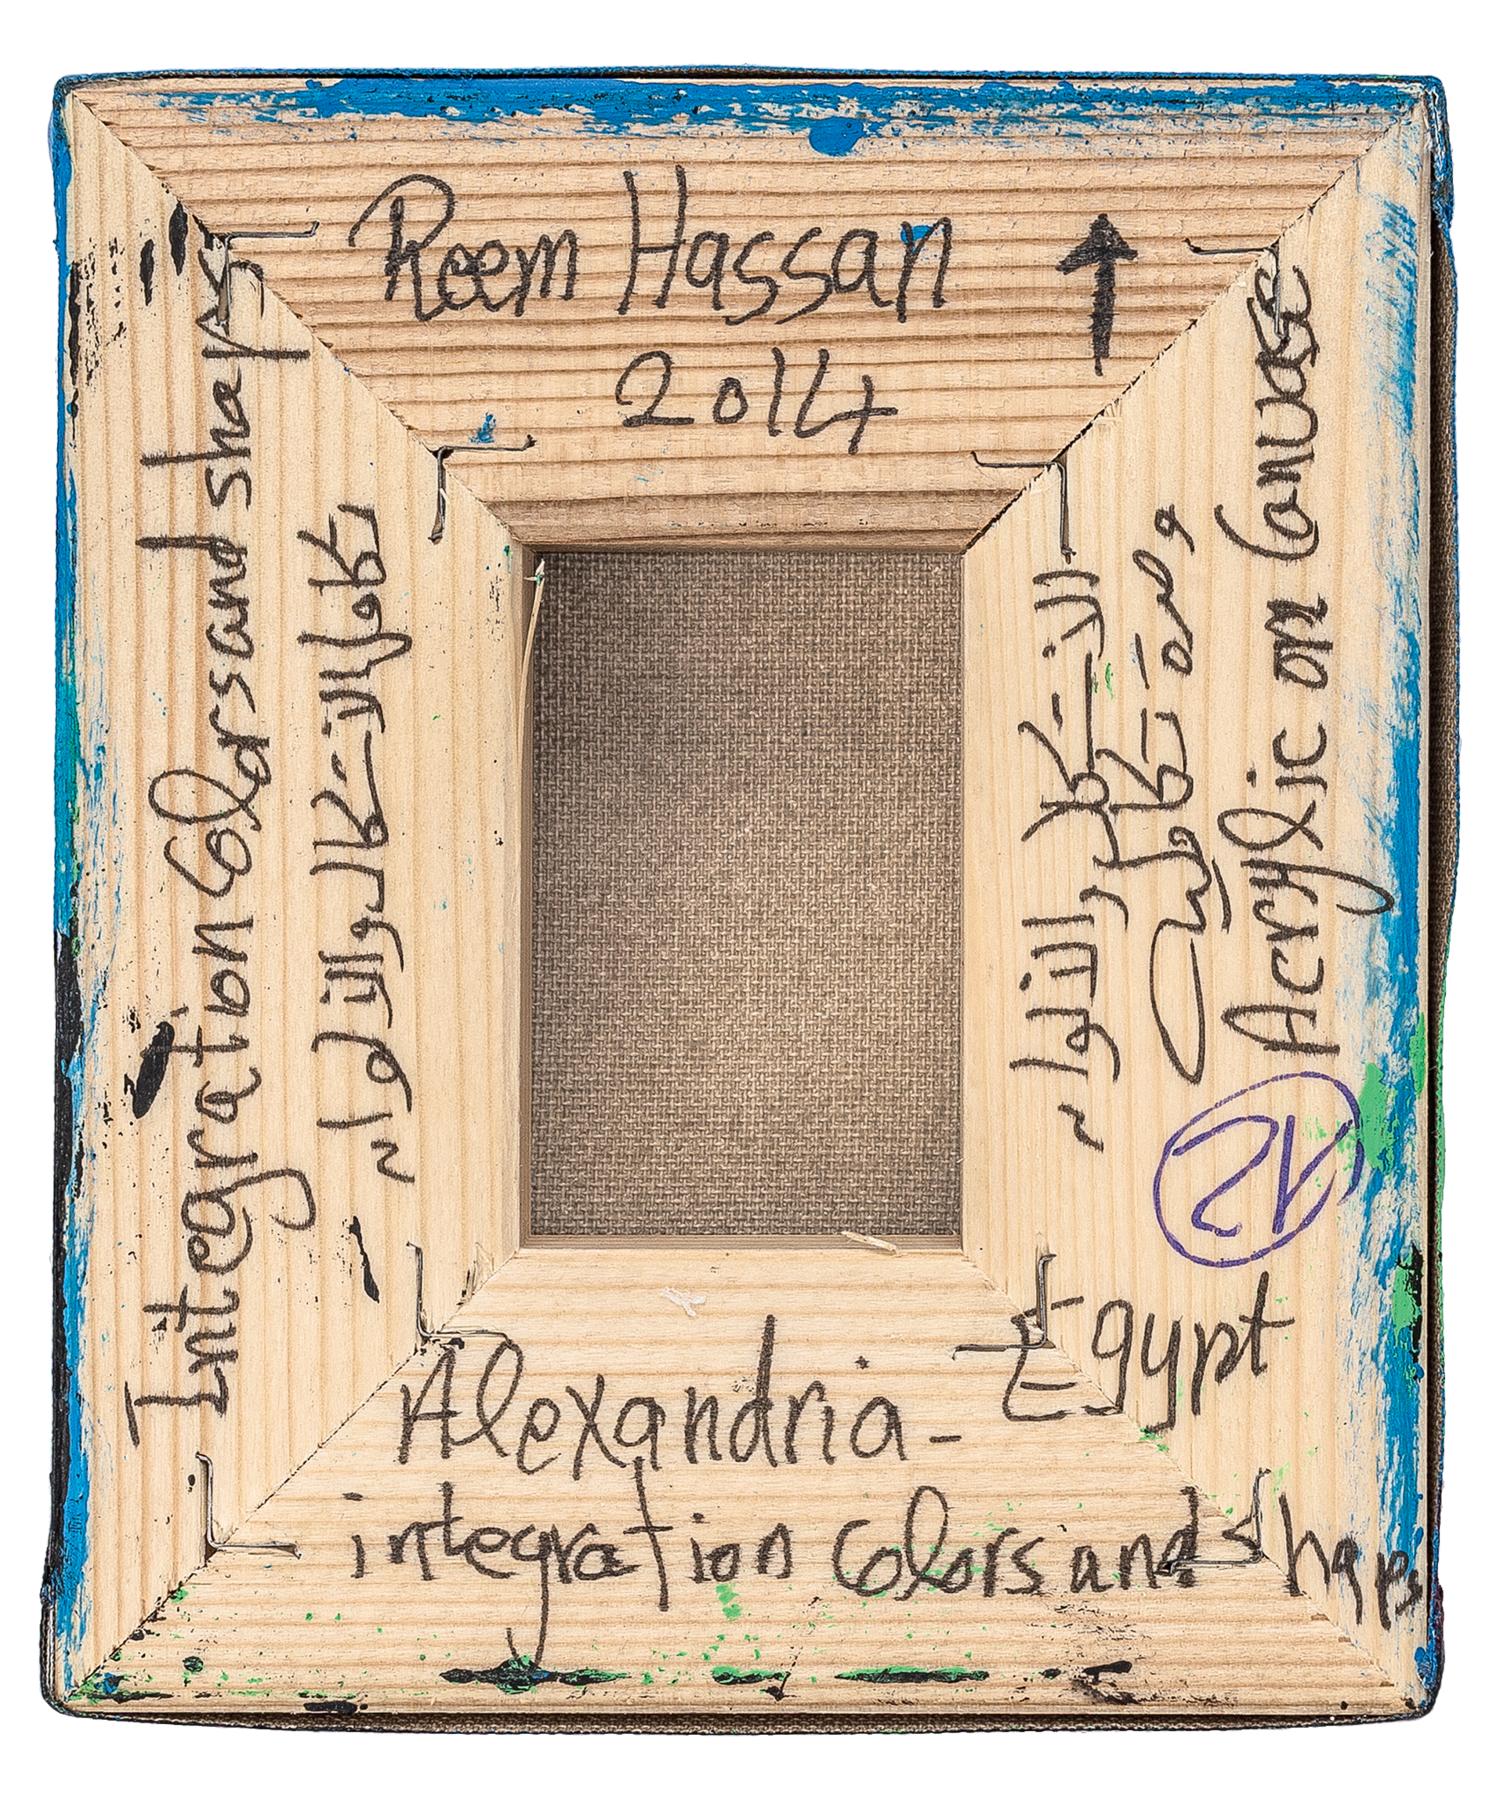 Reem Hassan
2014
Integration Colors and shaps
تكامل الاشكال والالوان
الاشكال والالوان
تكاملية
Acrylic on Canvase
Alexandria - Egypt
integration Colors and shaps